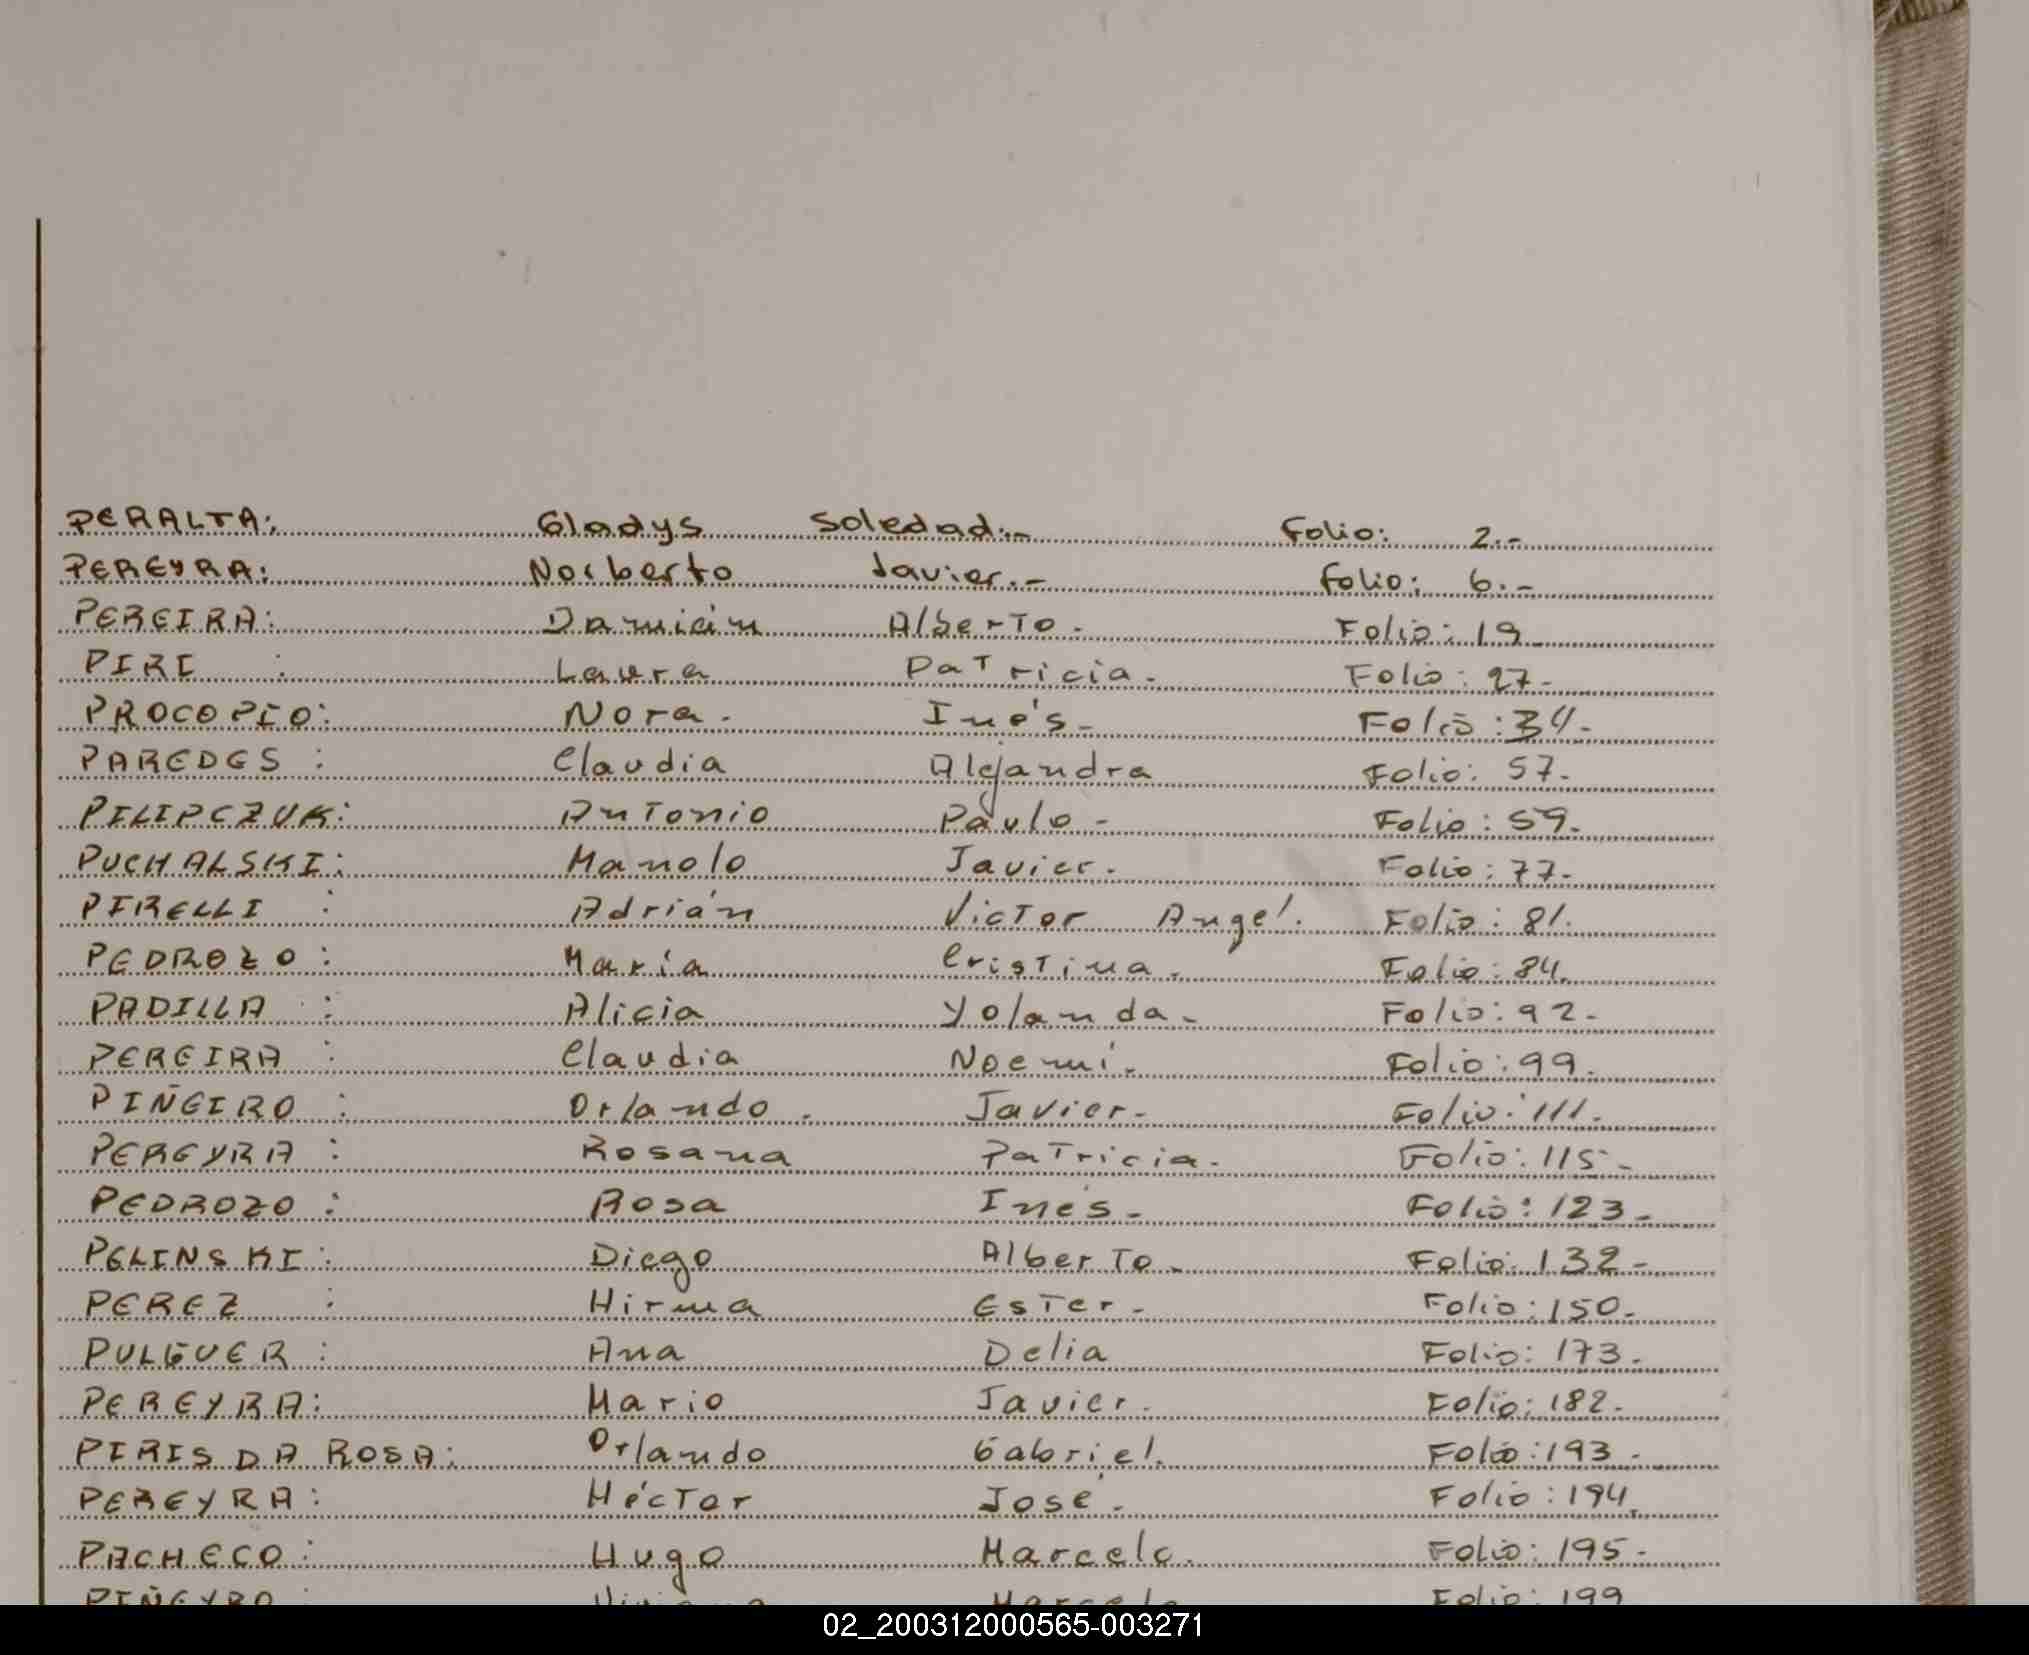 PERALTA: Gladys Soledad.- Folio: 2.-
PEREYRA: Norberto Javier.- Folio: 6.-
PEREIRA: Damián Alberto. Folio: 19
PIRI : Laura Patricia. Folio: 27-
PROCOPIO: Nora. Iné's- Folio: 34-
PAREDES : Claudia Alejandra Folio: 57.
PILIPCZUK: Antonio Paulo- Folio: 59.
PUCHALSKI: Manolo Javier. Folio: 77.
PIRELLI : Adrián Victor Angel. Folio: 81.
PEDROZO : María Cristina. Folio: 84.
PADILLA : Alicia Yolanda- Folio: 92-
PEREIRA : Claudia Noemí. Folio: 99.
PIÑEIRO : Orlando. Javier- Folio: 111.
PEREYRA : Rosana Patricia. Folio: 115-
PEDROZO : Rosa Inés- Folio: 123-
PELINSKI : Diego Alberto- Folio: 132-
PEREZ : Hirma Ester- Folio: 150-
PULGUER : Ana Delia Folio: 173.
PEREYRA: Mario Javier. Folio: 182.
PIRIS DA ROSA: Orlando Gabriel. Folio: 193-
PEREYRA: Héctor José. Folio: 194.
PACHECO: Hugo Marcelo. Folio: 195-
PIÑEYRO Marcelo Folio: 199
02_200312000565-003271